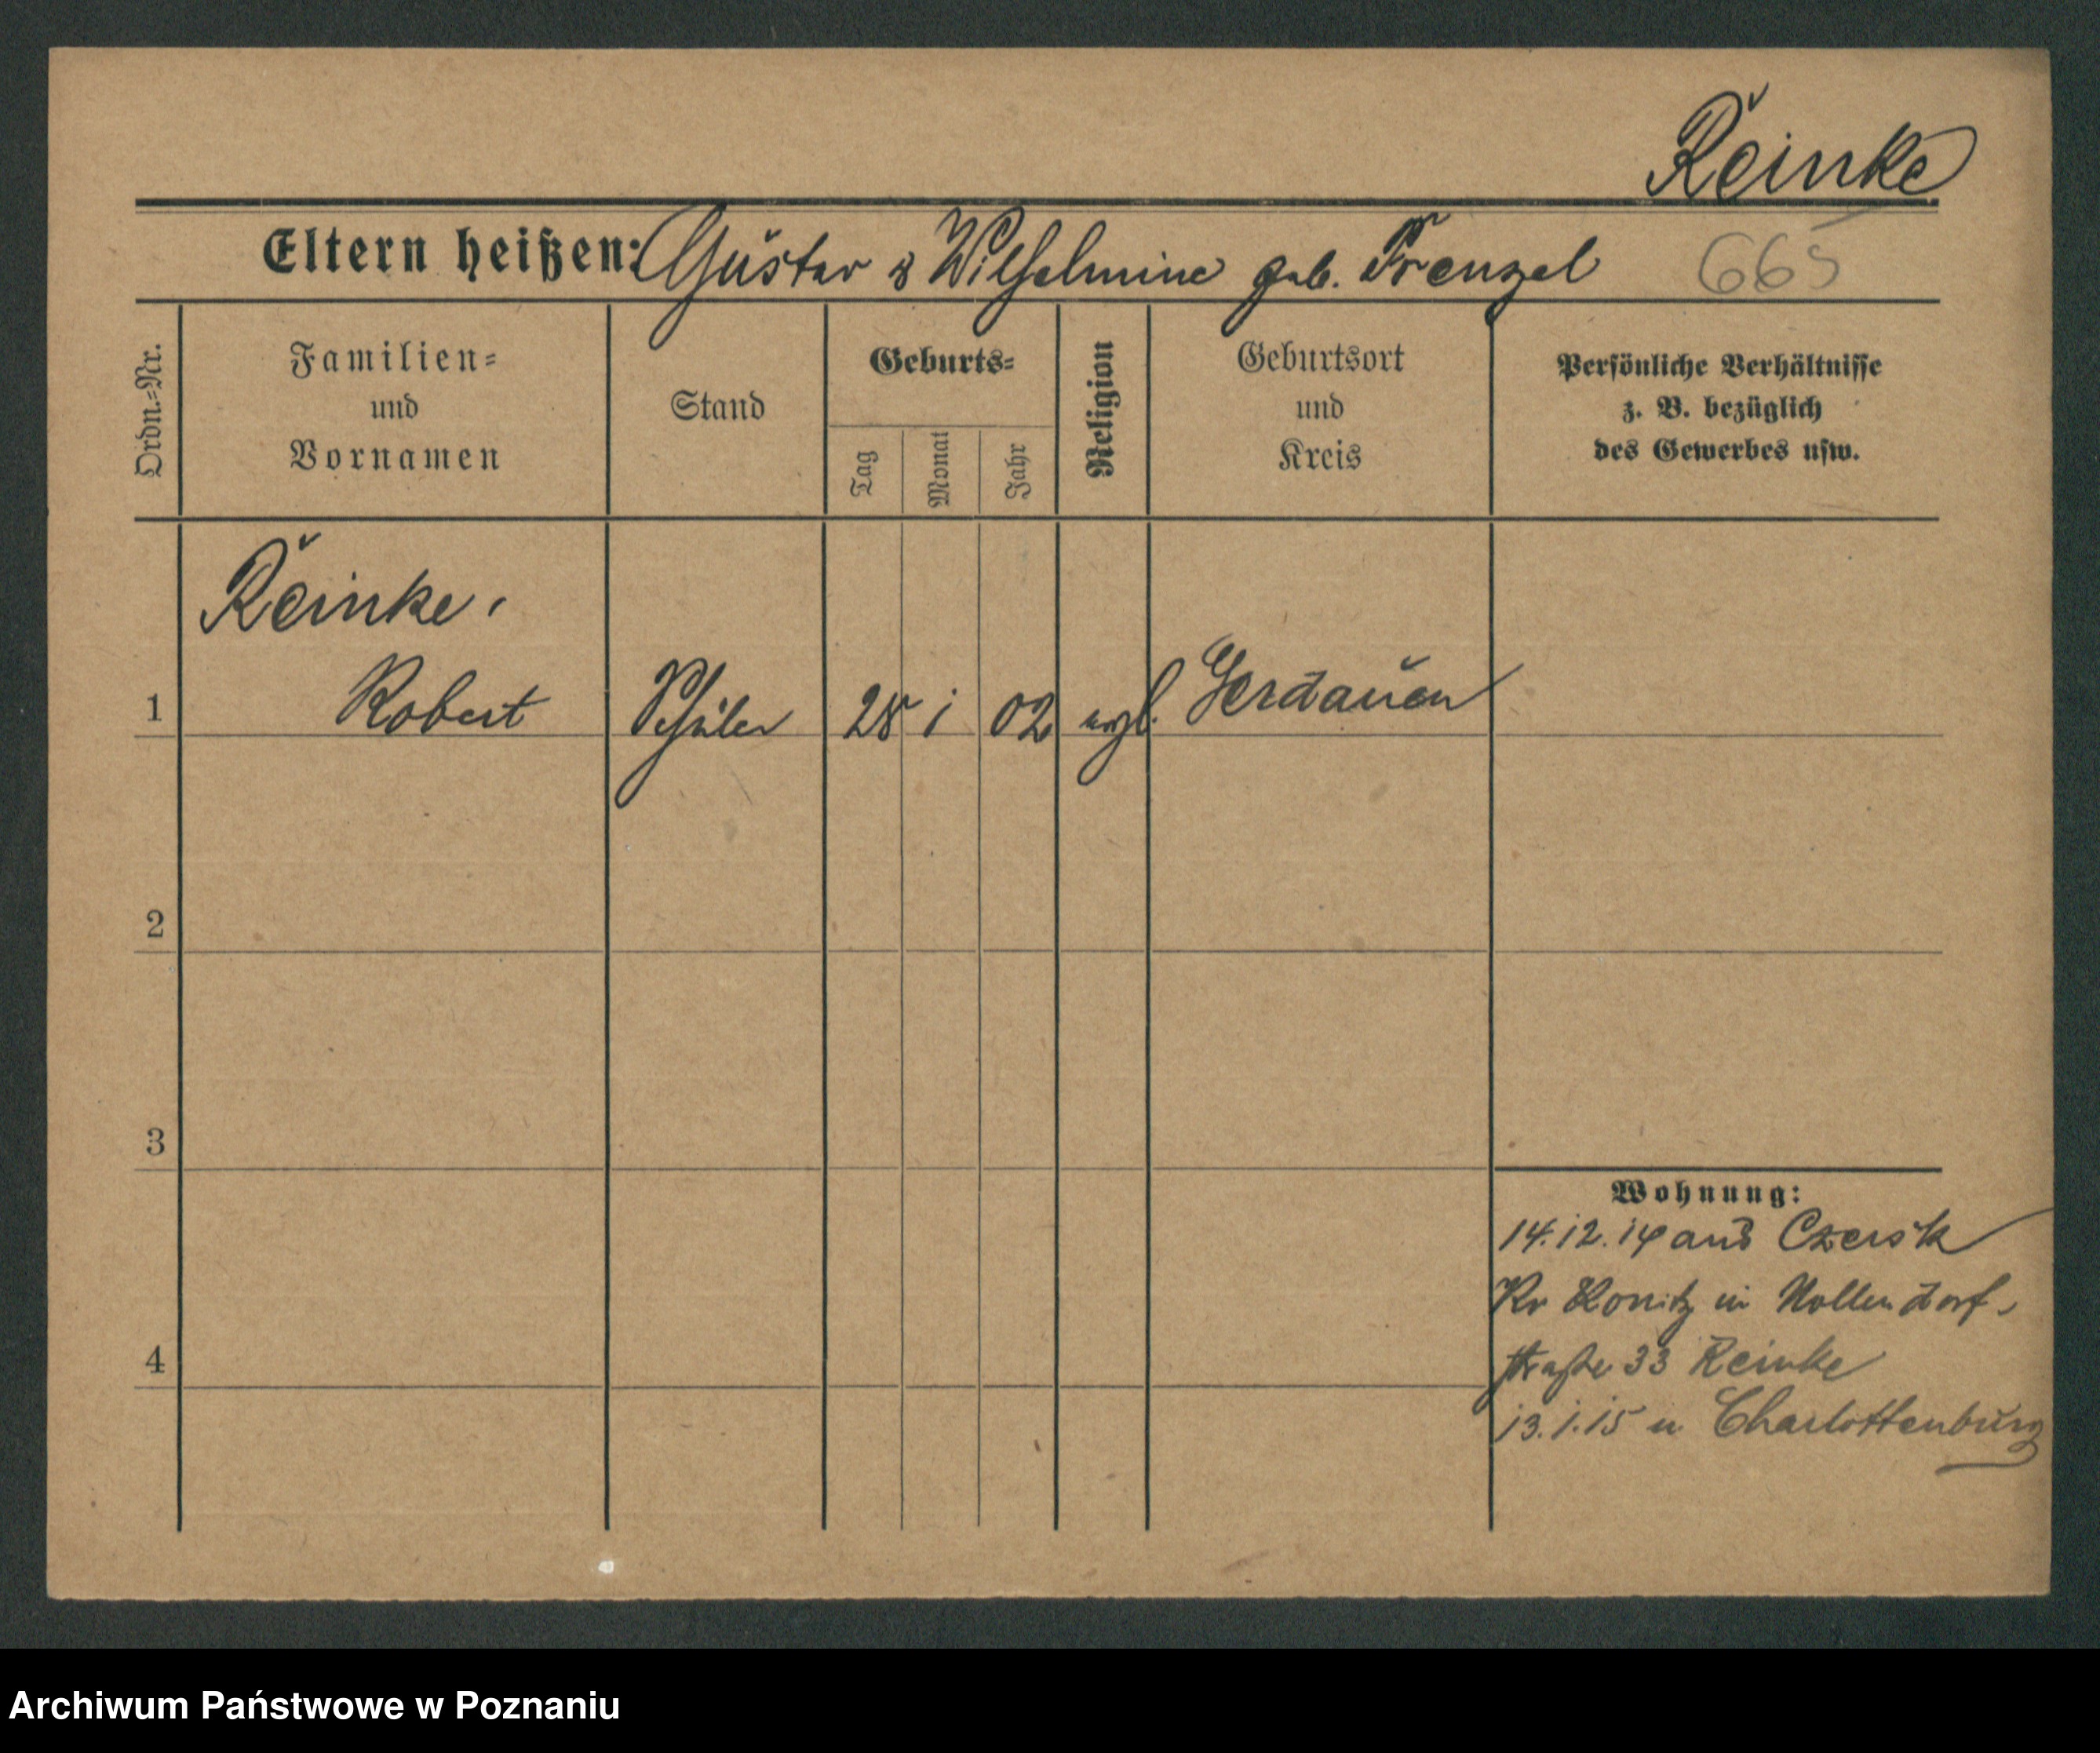 Reinke
Eltern heißen: Gustav & Wilhelmine geb. Frenzel 665
Ordn.=Nr.
Familien=
und
Vornamen
Stand
Geburts=
Tag
Monat
Jahr
Religion
Geburtsort
und
Kreis
Persönliche Verhältnisse
z. B. bezüglich
des Gewerbes usw.
Reinke,
1 Robert Schüler 28 1 02 evgl. Gerdauen
2
3
4
Wohnung:
14.12.14 aus Czersk
Kr Konitz in Nollendorf-
straße 33 Reinke
13.1.15 n Charlottenburg
Archiwum Państwowe w Poznaniu